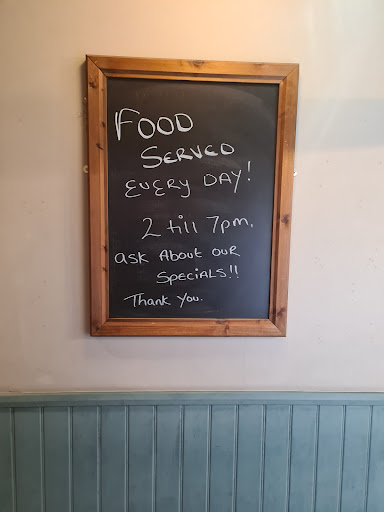 FOOD
SERVED
EVERY DAY!
2 till 7pm.
ask About our
SPECiALS!!
Thank You.